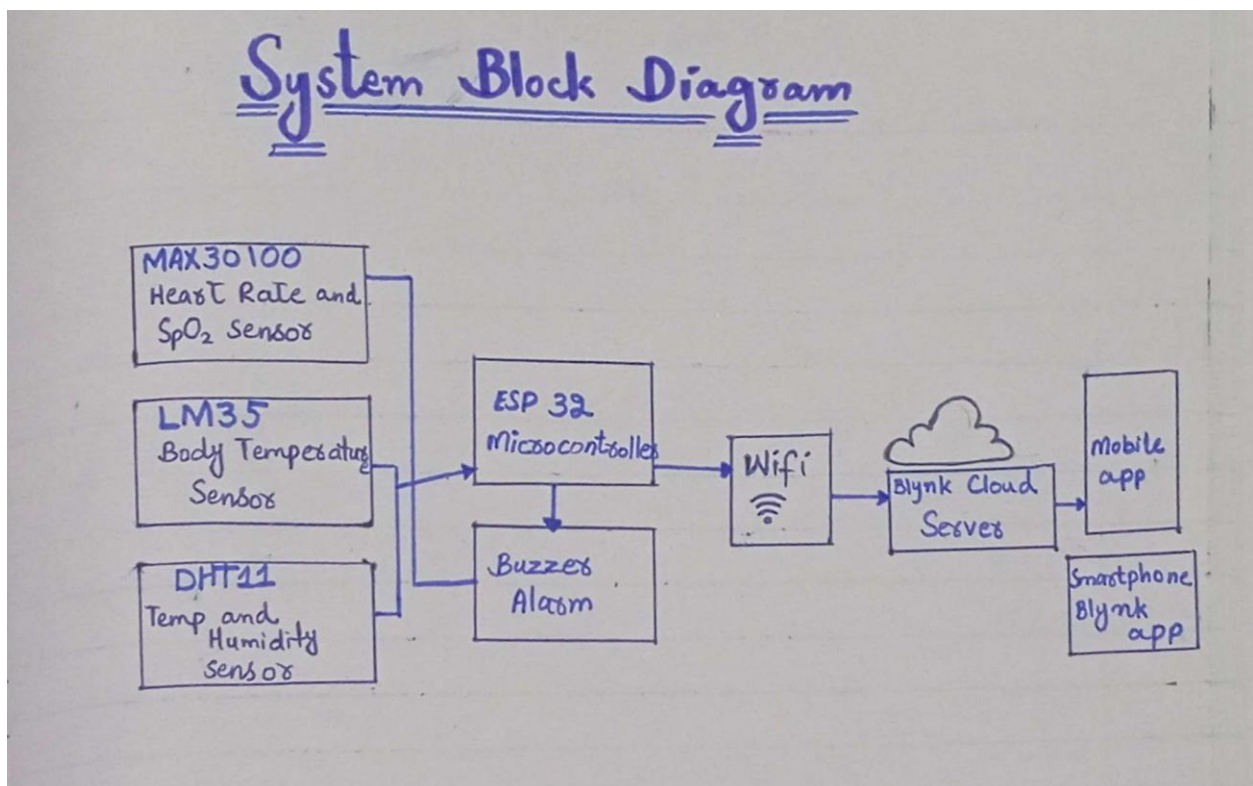 System Block Diagram
MAX30100
Heart Rate and
SpO₂ Sensor
LM35
Body Temperature
Sensor
DHT11
Temp and
Humidity
Sensor
ESP 32
Microcontroller
Buzzer
Alarm
Wifi
Blynk Cloud
Server
Mobile
app
Smartphone
Blynk
app